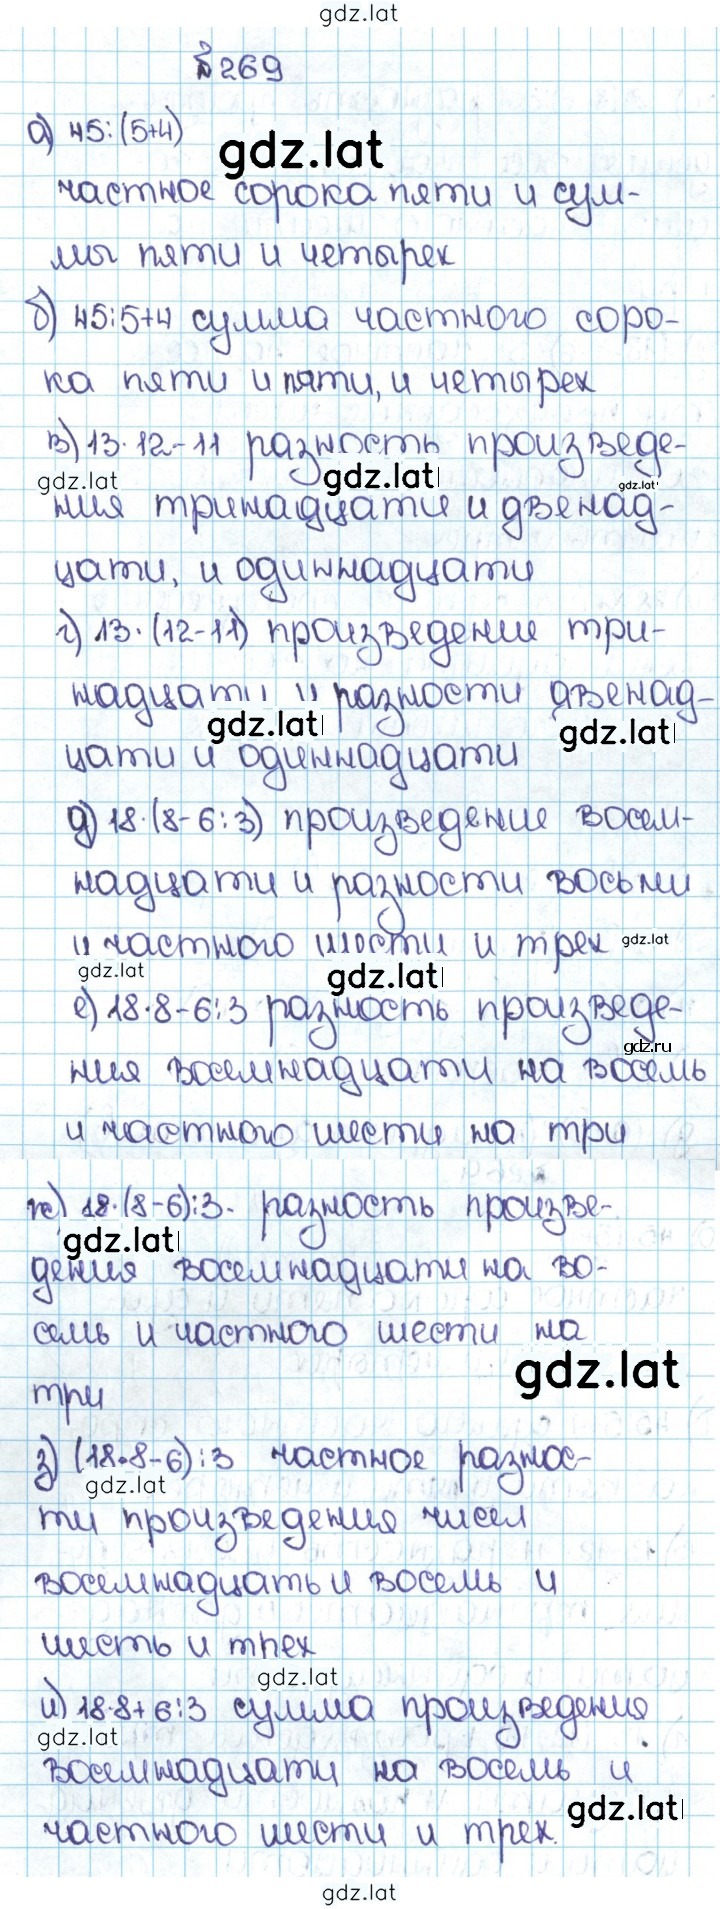 gdz.lat
№269
а) 45:(5+4)
gdz.lat
частное сорока пяти и сум-
мы пяти и четырех
б) 45:5+4 сумма частного соро-
ка пяти и пяти, и четырех
в) 13·12-11 разность произведе-
gdz.lat gdz.lat gdz.lat
ния тринадцати и двенад-
цати, и одиннадцати
г) 13·(12-11) произведение три-
надцати и разности двенад-
gdz.lat gdz.lat
цати и одиннадцати
д) 18·(8-6:3) произведение восем-
надцати и разности восьми
и частного шости и трех gdz.lat
gdz.lat gdz.lat
е) 18·8-6:3 разность произведе-
gdz.ru
ния восемнадцати на восемь
и частного шести на три
ж) 18·(8-6):3. разность произве-
gdz.lat
дения восемнадцати на во-
семь и частного шести на
gdz.lat
три
з) (18·8-6):3 частное разнос-
gdz.lat
ти произведения чисел
восемнадцать и восемь и
шесть и трех
gdz.lat
и) 18·8+6:3 сумма произведения
gdz.lat
восемнадцати на восемь и
gdz.lat
частного шести и трех.
gdz.lat